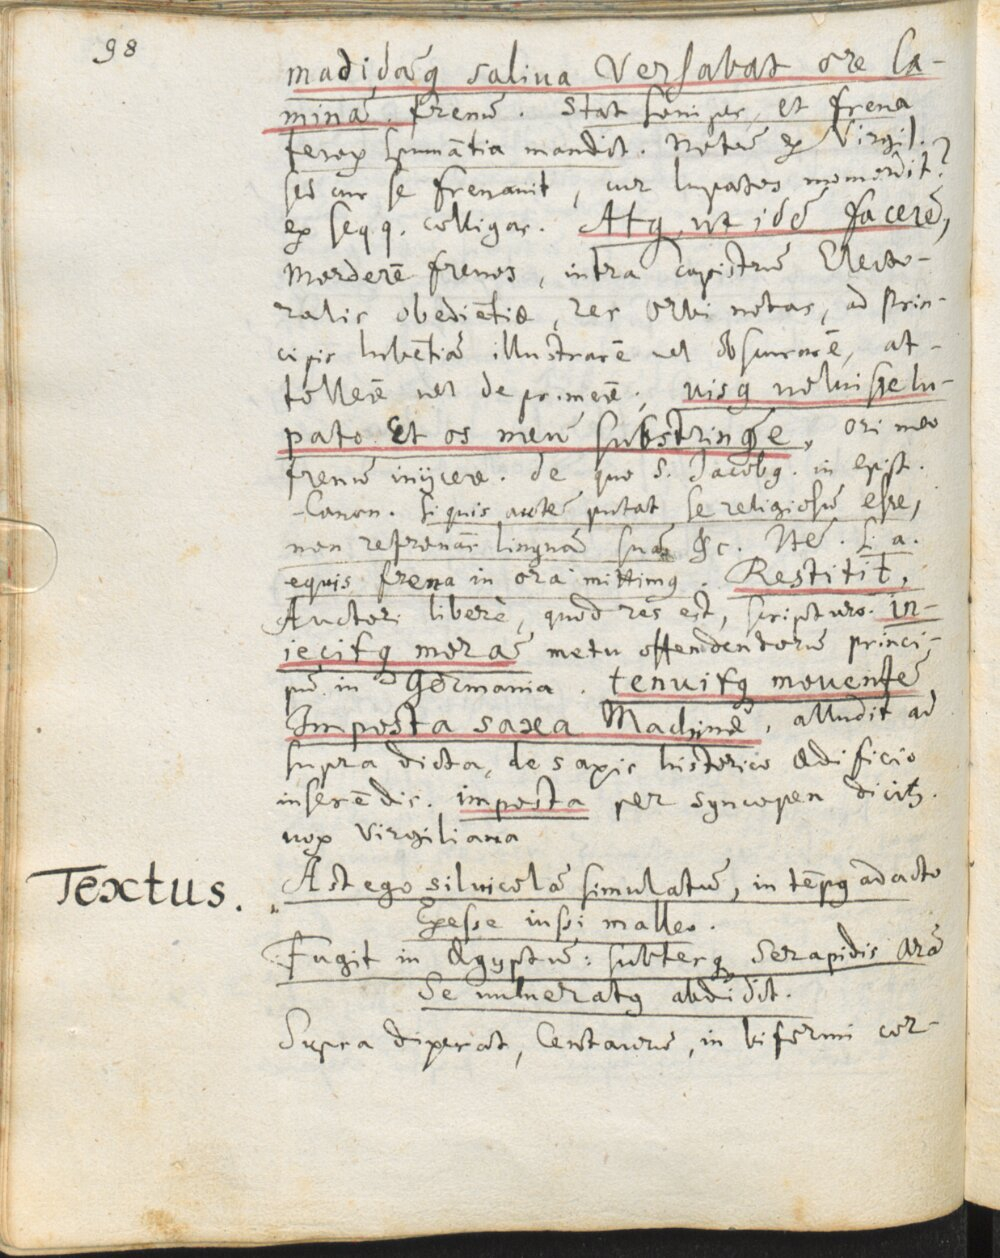 98
madidāq saliva Versabat ore la-
minā. frenū. Stat sonipes, et frena
ferox spumātia mandit. Notū ex Virgil.
sed cur se frenavit, cur lupatos momordit?
ex seqq. colligas. Atq, ut idē facerē,
Morderē frenos, intra capistrū Electo-
ralis obedietiæ, res Orbi notas, ad Prin-
cipis lubētiā illustrarē vel obscurarē, at-
tollerē vel deprimerē, visq noluisse lu-
pato Et os meū substringēe, ori meo
frenū inijcere. de quo S. Jacobq. in epist.
Canon. si quis autē putat se religiosū esse,
non refrenās linguā suā &c. Itē. si a.
equis frena in ora mittimq. Restitit,
Auctori liberè, quod res est, scripturo. in-
iecitq morā metu offendendorū princi-
pū in Germania. tenuitq movente
Imposta saxa Machinæ, alludit ad
supra dicta, de saxis historico ædificio
inserēdis. imposta per syncopen dicitr.
vox Virgiliana
Textus.
Ast ego silvicolā simulatū, in tēpq adacto
Exesse iussi malleo.
Fugit in Ægyptū: subterq Serapidis arā
Se vulneratq abdidit.
Supra dixerat, Centaurū, in biformi cor-